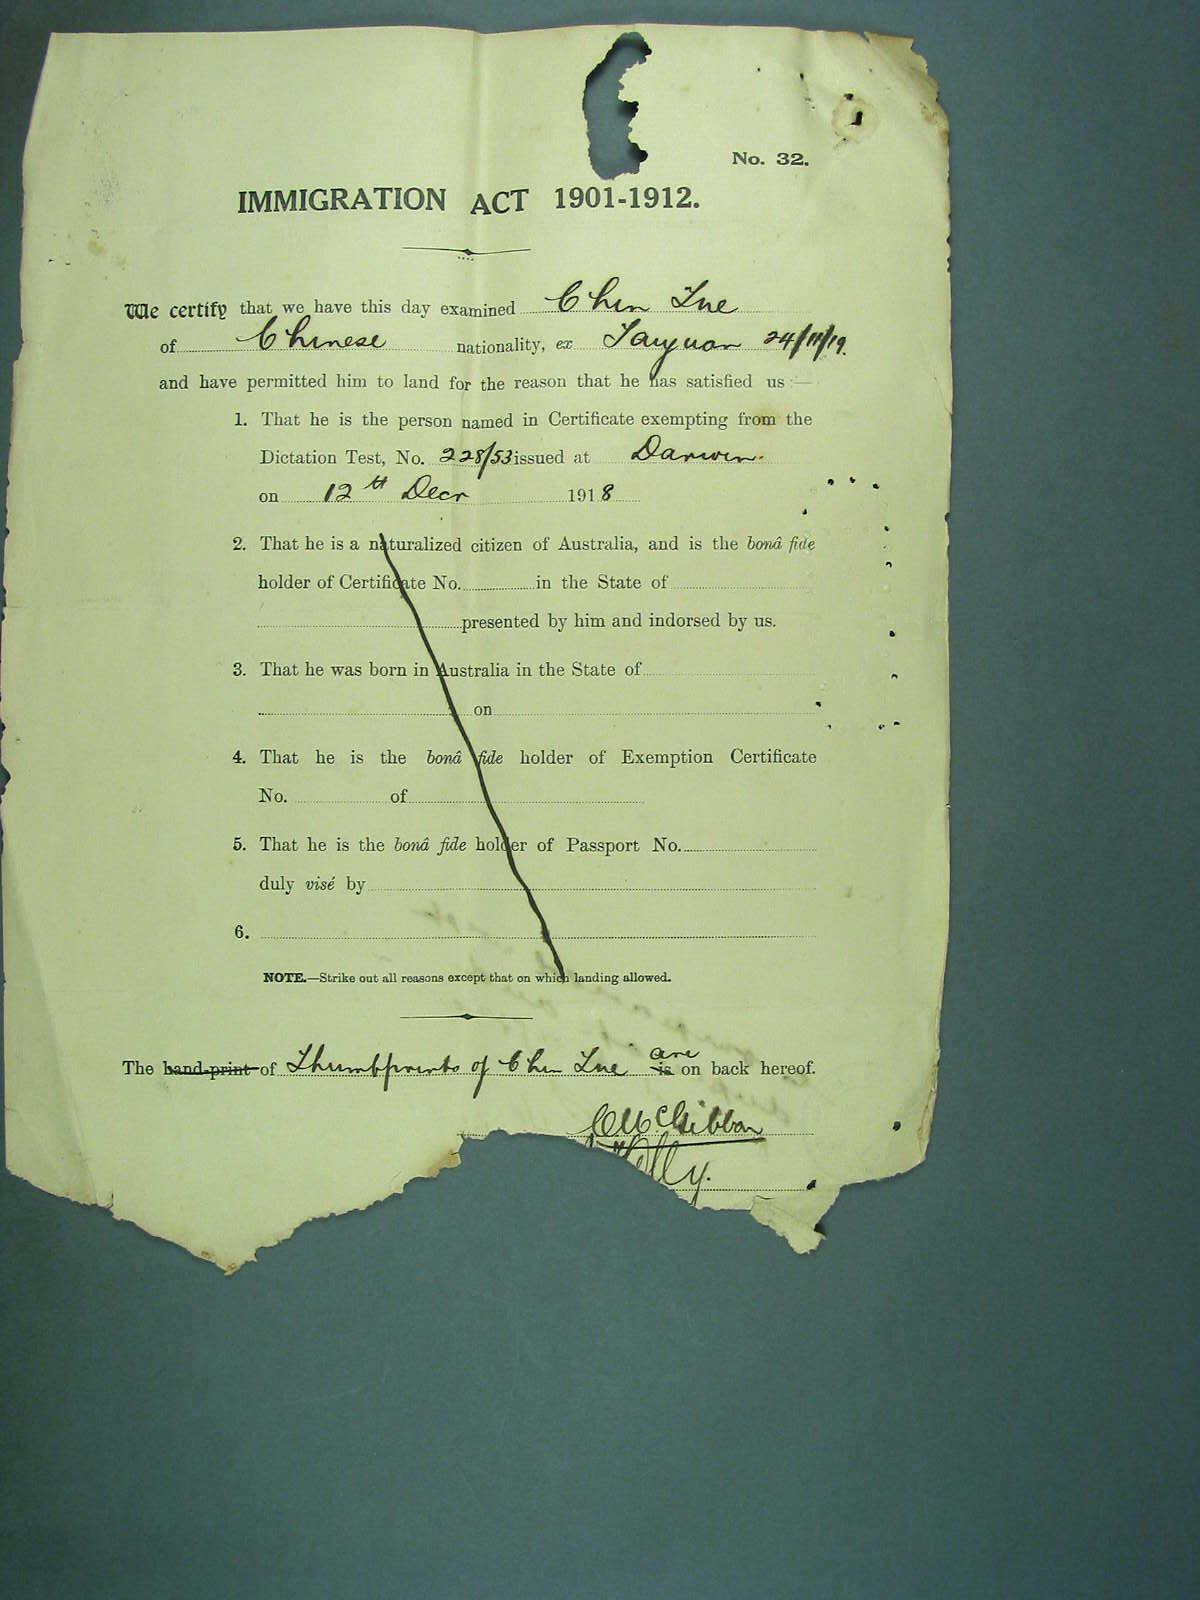 No. 32.
IMMIGRATION ACT 1901-1912.
We certify that we have this day examined Chin Lue
of Chinese nationality, ex Taiyuan 24/11/19.
and have permitted him to land for the reason that he has satisfied us :—
1. That he is the person named in Certificate exempting from the
Dictation Test, No. 228/53 issued at Darwin.
on 12th Decr 1918
2. That he is a naturalized citizen of Australia, and is the bonâ fide
holder of Certificate No. in the State of
presented by him and indorsed by us.
3. That he was born in Australia in the State of
on
4. That he is the bonâ fide holder of Exemption Certificate
No. of
5. That he is the bonâ fide holder of Passport No.
duly visé by
6.
NOTE.—Strike out all reasons except that on which landing allowed.
The hand-print of Thumbprints of Chin Lue are is on back hereof.
McGibbon
Kelly.